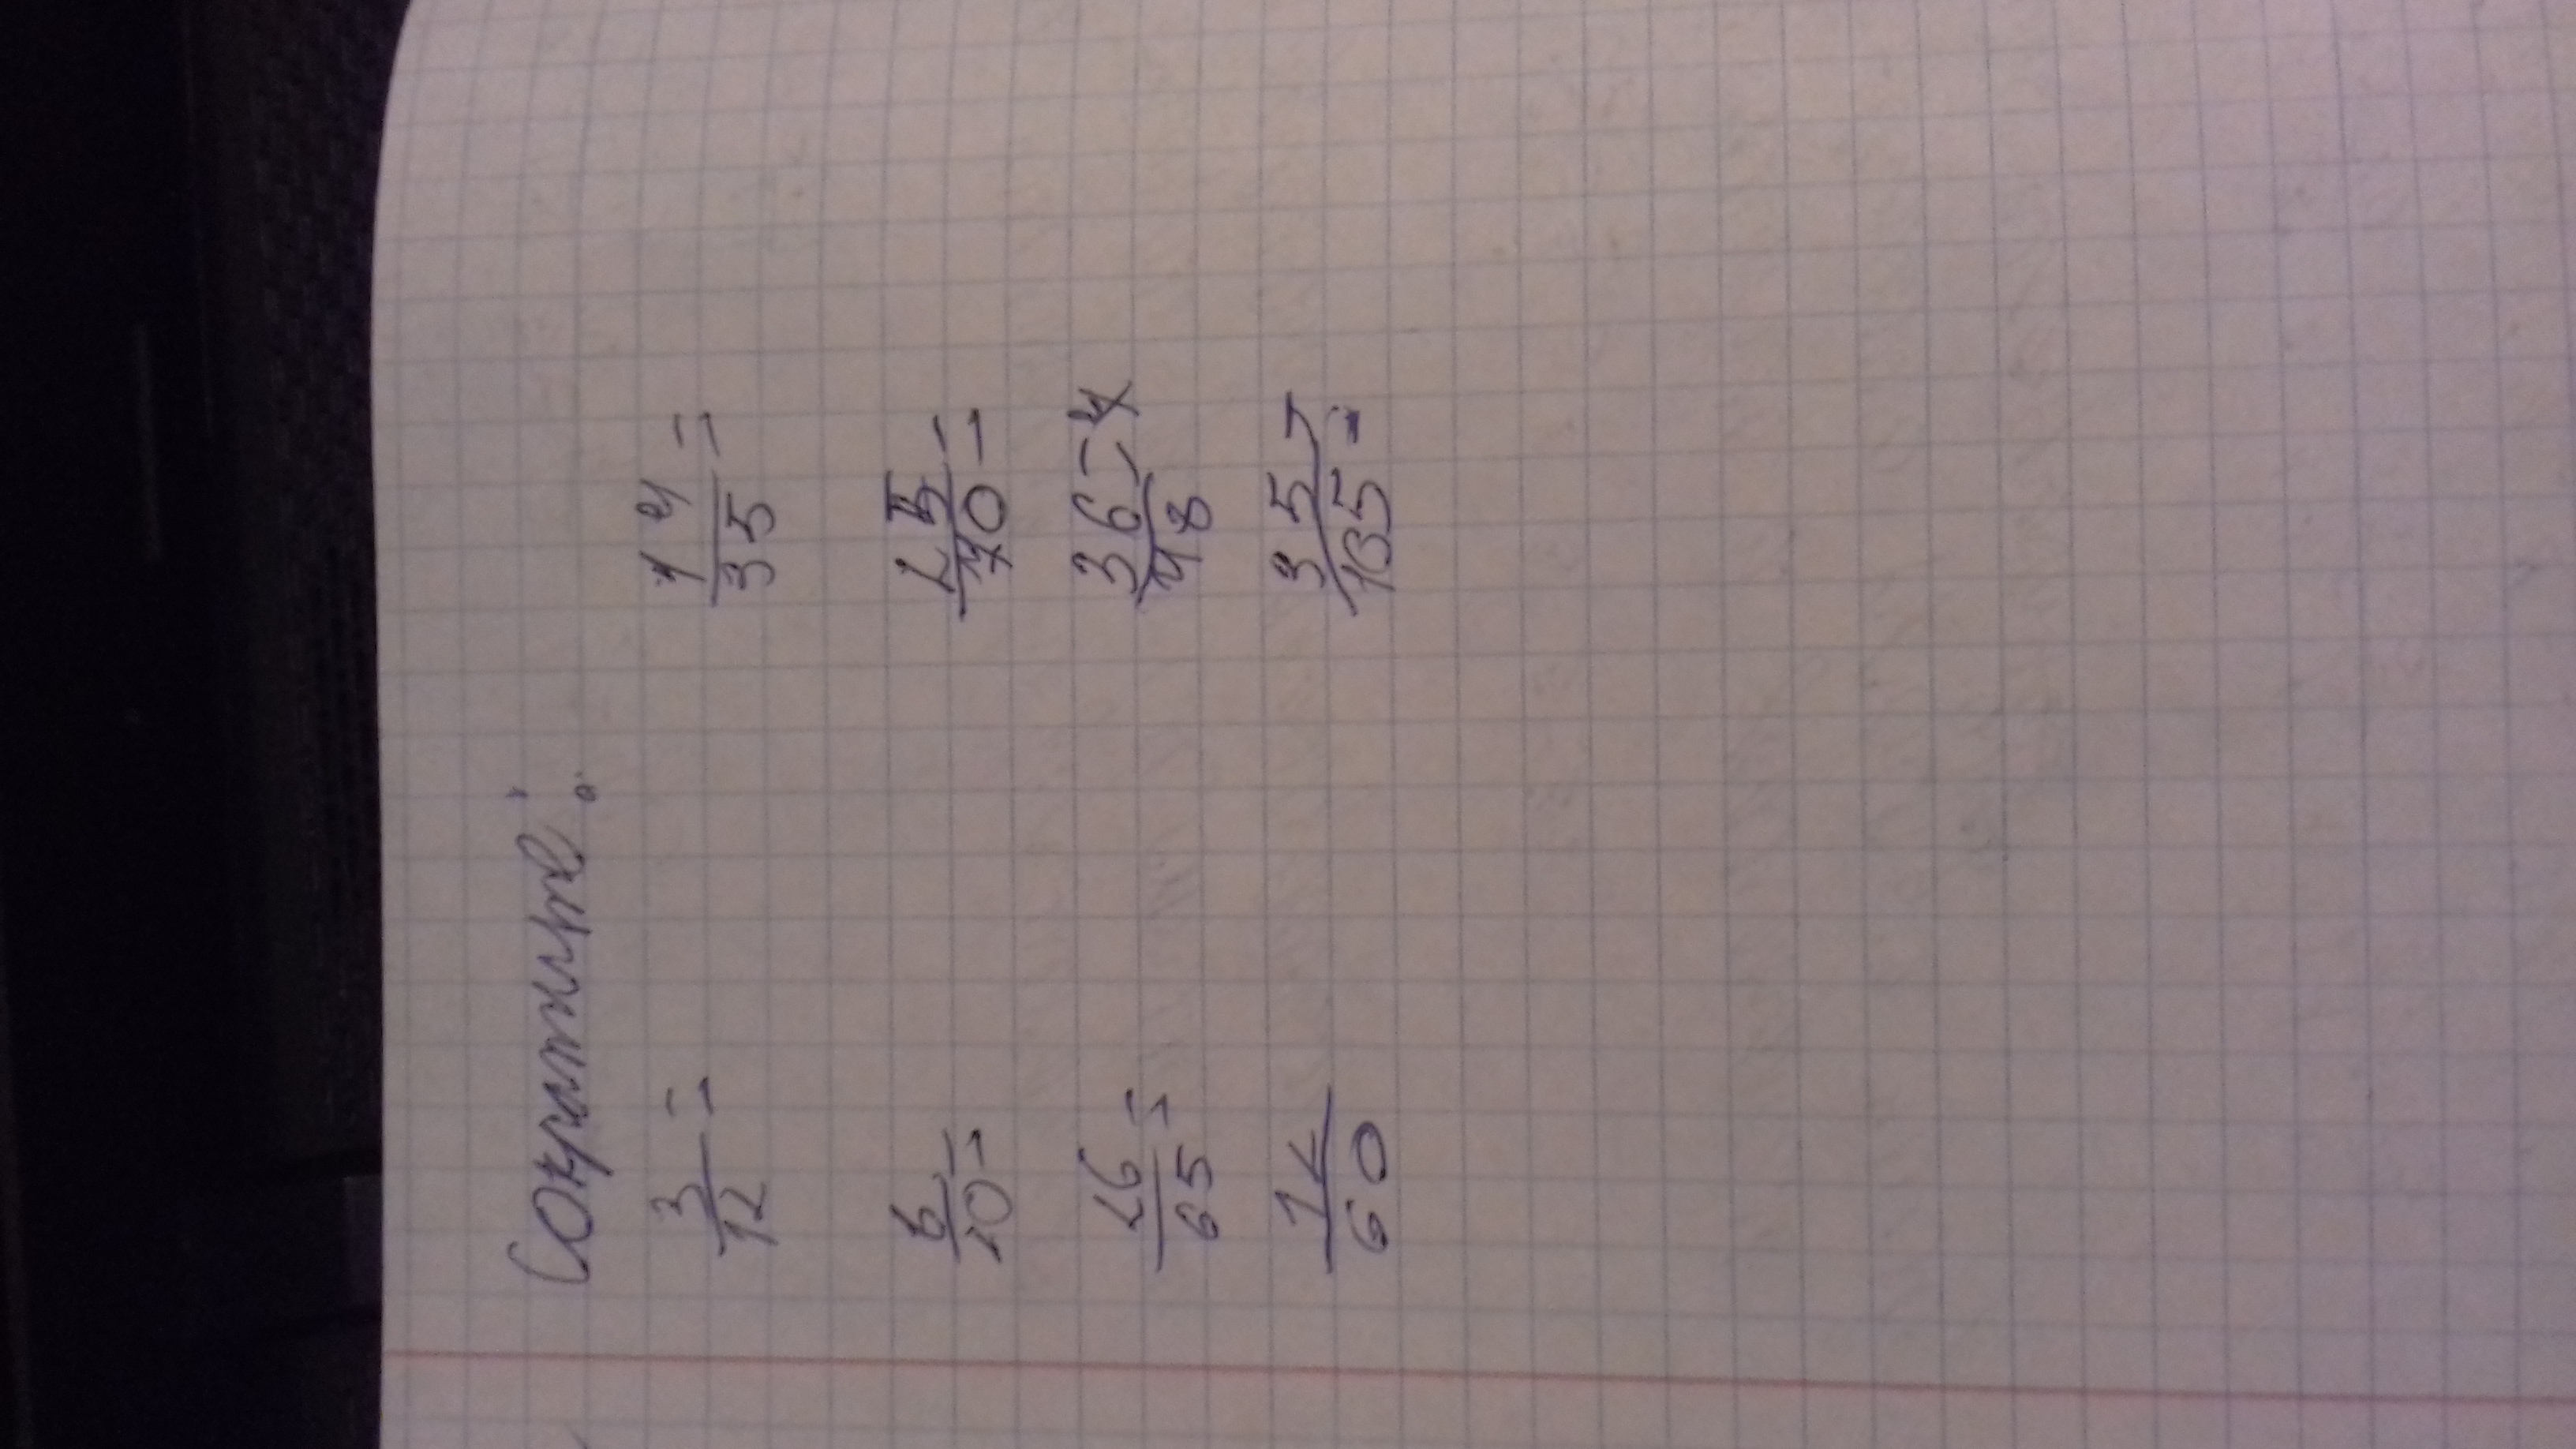 Сократите:
3/12 = 14/35 =
6/20 = 25/40 =
26/65 = 36/48 =
12/60 35/105 =